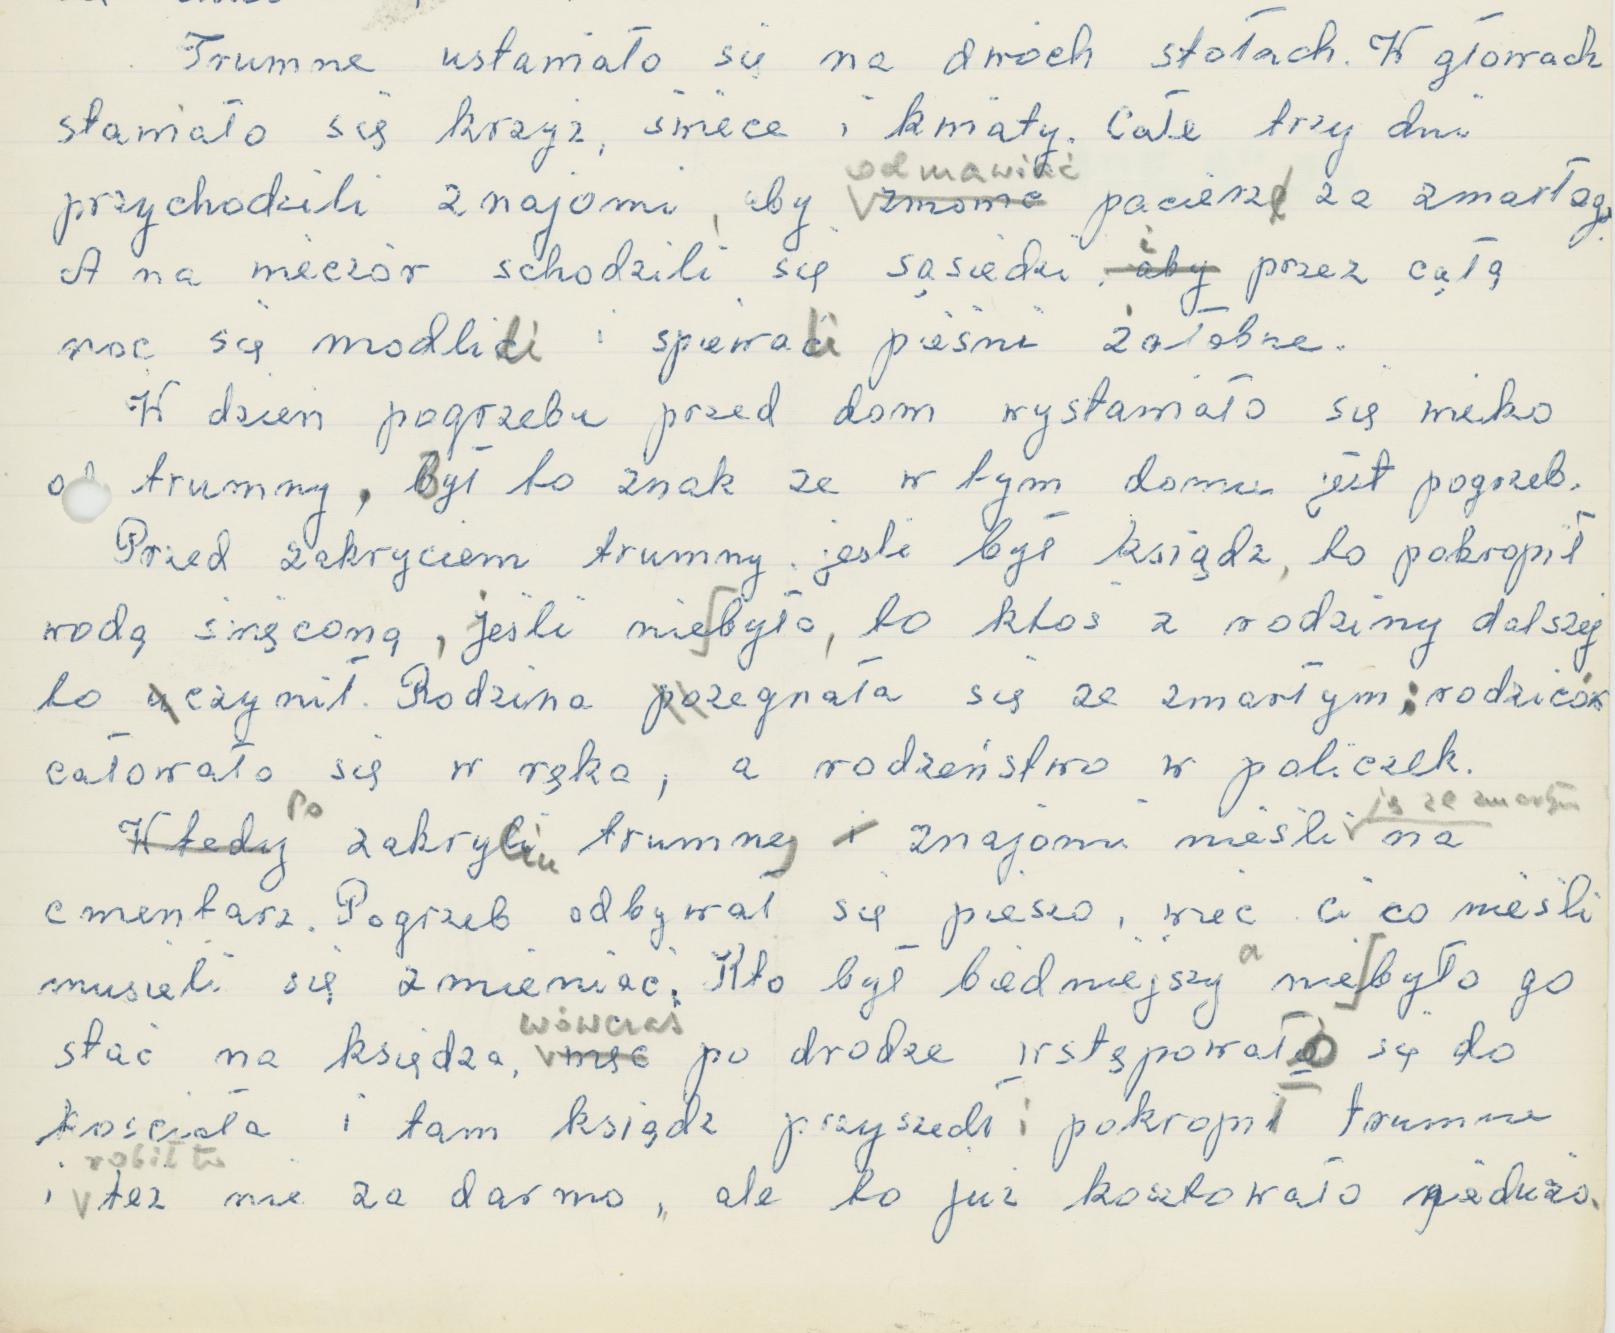 Trumne ustawiało się na dwoch stołach. W głowach
stawiało się krzyż, świece i kwiaty. Całe trzy dni
odmawiać
przychodzili znajomi, aby zmowić pacierze za zmarłego.
i
A na wieczór schodzili się sąsiedzi, aby przez całą
noc się modlili i spiewali pieśni żałobne.
W dzień pogrzebu przed dom wystawiało się wieko
od trumny, był to znak ze w tym domu jest pogrzeb.
Przed zakryciem trumny jesli był ksiądz, to pokropił
wodą święconą, jeśli niebyło, to ktos z rodziny dalszej
to uczynił. Rodzina pozegnała się ze zmarłym; rodziców
całowało się w ręka, a rodzeństwo w policzek.
Po ją ze zmarłym
Wtedy zakryciu trumny i znajomi nieśli na
cmentarz. Pogrzeb odbywał się pieszo, więc ci co nieśli
musieli się zmieniać. Kto był biedniejszy a niebyło go
wówczas
stać na księdza, więc po drodze wstępowało się do
kościoła i tam ksiądz przyszedł i pokropił trumne
robił to
i tez nie za darmo, ale to już kosztowało niedużo.